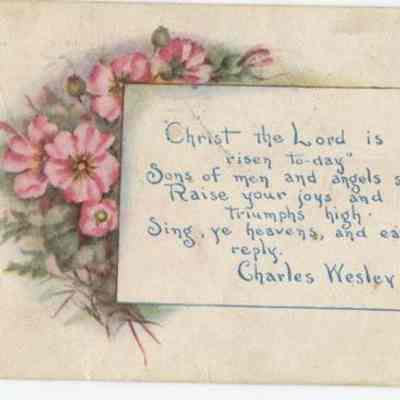 "Christ the Lord is
risen to-day"
Sons of men and angels s
Raise your joys and
triumphs high.
Sing, ye heavens, and ea
reply.
Charles Wesley